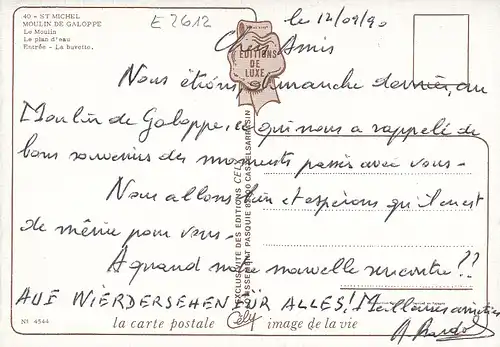 40 - ST MICHEL
MOULIN DE GALOPPE
Le Moulin
Le plan d'eau
Entrée - La buvette.
E 2612
le 12/09/90
Chers Amis
EDITIONS
DE
LUXE
Nous étions dimanche dernier, au
Moulin de Galoppe, ce qui nous a rappelé de
bons souvenirs des moments passés avec vous-
Nous allons bien et espérons qu'il en est
de même pour vous-
A quand une nouvelle rencontre??
AUF WIERDERSEHEN FÜR ALLES! Meilleures amitiés
EXCLUSIVITE DES EDITIONS CELY
LOTISSEMENT PASQUIE CASTELSARRASIN
N1 4544
la carte postale Cély image de la vie